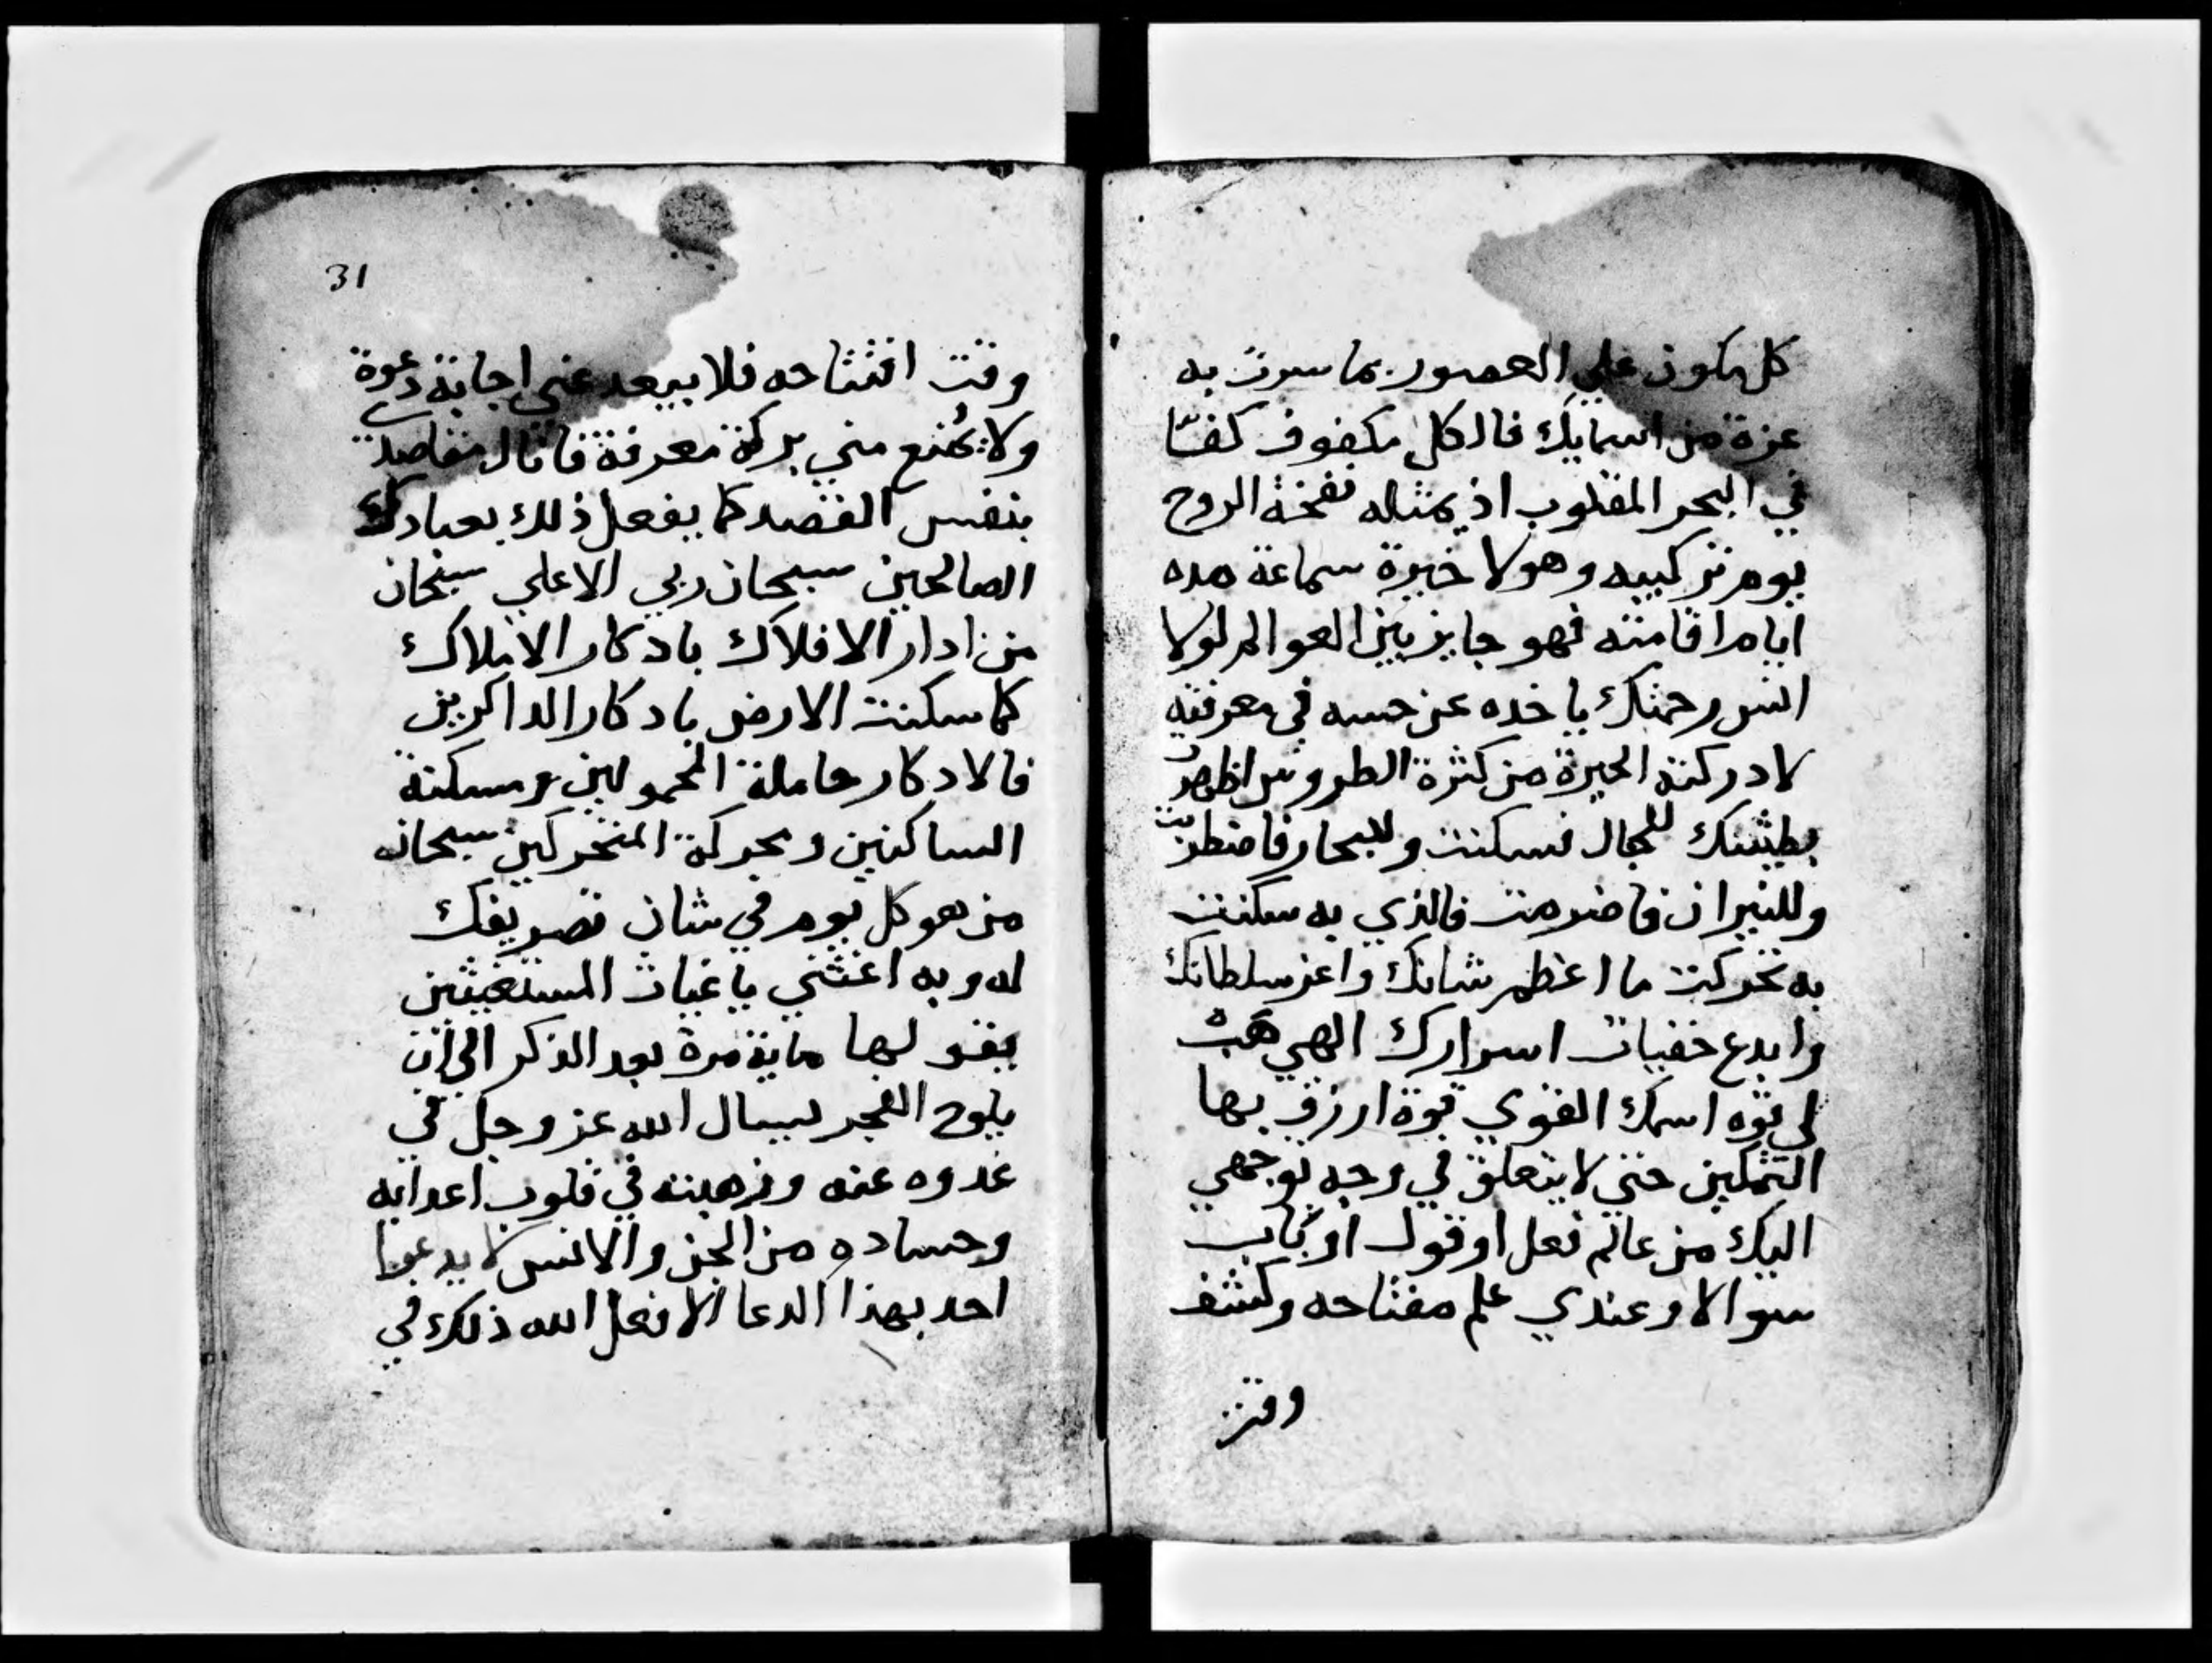 كل مكون علي العصور بما سرت به
عزة من اسمايك فالكل مكفوف كفتا
في البحر المقلوب اذ يمثاله نفخة الروح
يوم تركيبه وهولا خيرة سماعة مده
ايام اقامته فهو جايز بين العوالم لولا
انس رحمتك ياخده عن حسه في معرفته
لادركته الحيرة من كثرة الطروش اظهرت
بطشتك للجبال فسكنت وللبحار فاضطربت
وللنيران فاضرمت فالذي به سكنت
به تحركت ما اعظم شانك واعز سلطانك
وابدع خفيات اسرارك الهي هب
لي قوه اسمك القوي قوة ارزق بها
التمكين حتي لا يتعلق في وجه توجهي
اليك من عالم فعل او قول او باب
سوالا وعندي علم مفتاحه وكشف
وقت
31
وقت افتتاحه فلا يبعد عني اجابة دعوة
ولا يمنع مني بركة معرفة فانال مقاصدي
بنفس القصد كما يفعل ذلك بعبادك
الصالحين سبحان ربي الاعلي سبحان
من ادار الافلاك بادكار الاملاك
كما سكنت الارض بادكار الداكرين
فالادكار حاملة المحمولين ومسكنة
الساكنين ومحركة المتحركين سبحانه
من هو كل يوم في شان تصريفك
له وبه اغثني ياغياث المستغيثين
يقولها ماية مرة بعد الذكر الي ان
يلوح الفجر ليسال الله عز وجل في
عدوه عنه وترهبنه في قلوب اعدايه
وحساده من الجن والانس لا يدعوا
احد بهذا الدعا الا فعل الله ذلك في